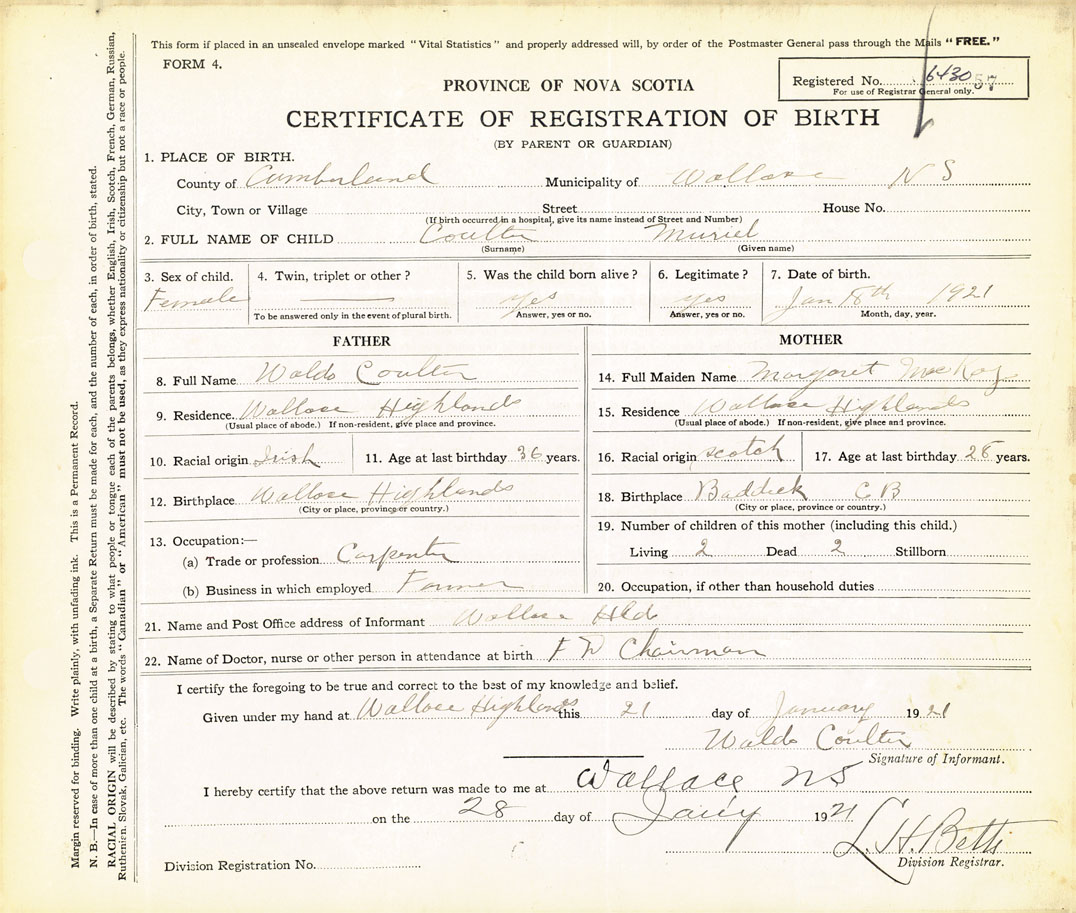 This form if placed in an unsealed envelope marked "Vital Statistics" and properly addressed will, by order of the Postmaster General pass through the Mails "FREE."
FORM 4.
Registered No. 6430 57
For use of Registrar General only.
PROVINCE OF NOVA SCOTIA
CERTIFICATE OF REGISTRATION OF BIRTH
(BY PARENT OR GUARDIAN)
1. PLACE OF BIRTH.
County of Cumberland Municipality of Wallace N S
City, Town or Village Street House No.
(If birth occurred in a hospital, give its name instead of Street and Number)
2. FULL NAME OF CHILD Coulter Muriel
(Surname) (Given name)
3. Sex of child. 4. Twin, triplet or other? 5. Was the child born alive? 6. Legitimate? 7. Date of birth.
Female yes yes Jan 18th 1921
To be answered only in the event of plural birth. Answer, yes or no. Answer, yes or no. Month, day, year.
FATHER
8. Full Name Waldo Coulter
9. Residence. Wallace Highlands
(Usual place of abode.) If non-resident, give place and province.
10. Racial origin Irish 11. Age at last birthday 36 years.
12. Birthplace Wallace Highlands
(City or place, province or country.)
13. Occupation:—
(a) Trade or profession Carpenter
(b) Business in which employed Farmer
MOTHER
14. Full Maiden Name Margaret MacKay
15. Residence Wallace Highlands
(Usual place of abode.) If non-resident, give place and province.
16. Racial origin scotch 17. Age at last birthday years.
18. Birthplace Baddeck C B
(City or place, province or country.)
19. Number of children of this mother (including this child.)
Living 2 Dead 2 Stillborn
20. Occupation, if other than household duties
21. Name and Post Office address of Informant Wallace Hld
22. Name of Doctor, nurse or other person in attendance at birth F W Chairman
I certify the foregoing to be true and correct to the best of my knowledge and belief.
Given under my hand at Wallace Highlands this 21 day of January 1921
Waldo Coulter
Signature of Informant.
I hereby certify that the above return was made to me at Wallace NS
on the 28 day of Jan'y 1921
L. H. Betts
Division Registrar.
Division Registration No.
Margin reserved for binding. Write plainly, with unfading ink. This is a Permanent Record.
N. B.—In case of more than one child at a birth, a Separate Return must be made for each, and the number of each, in order of birth, stated.
RACIAL ORIGIN will be described by stating to what people or tongue each of the parents belongs, whether English, Irish, Scotch, French, German, Russian,
Ruthenian, Slovak, Galician, etc. The words "Canadian" or "American" must not be used, as they express nationality or citizenship but not a race or people.